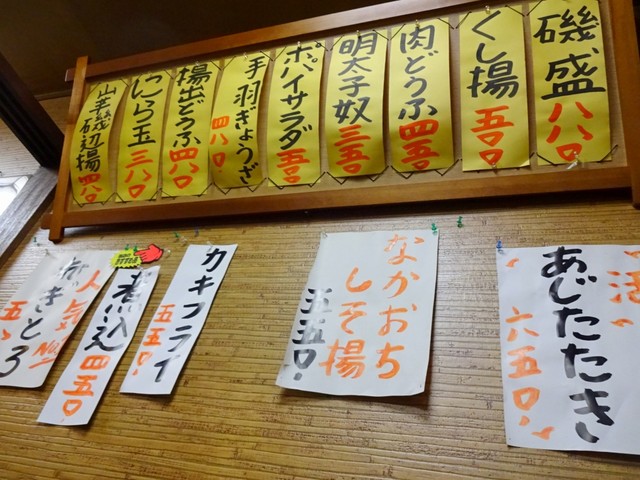 磯盛
八八〇
くし揚
五〇〇
肉どうふ
四五〇
明太子奴
三五〇
ポパイサラダ
五〇〇
手羽ぎょうざ
四八〇
揚出どうふ
四八〇
にら玉
三八〇
山芋磯辺揚
四八〇
活
あじたたき
六五〇
なかおち
しそ揚
五五〇
カキフライ
五五〇
煮込
四五〇
人気
No.1